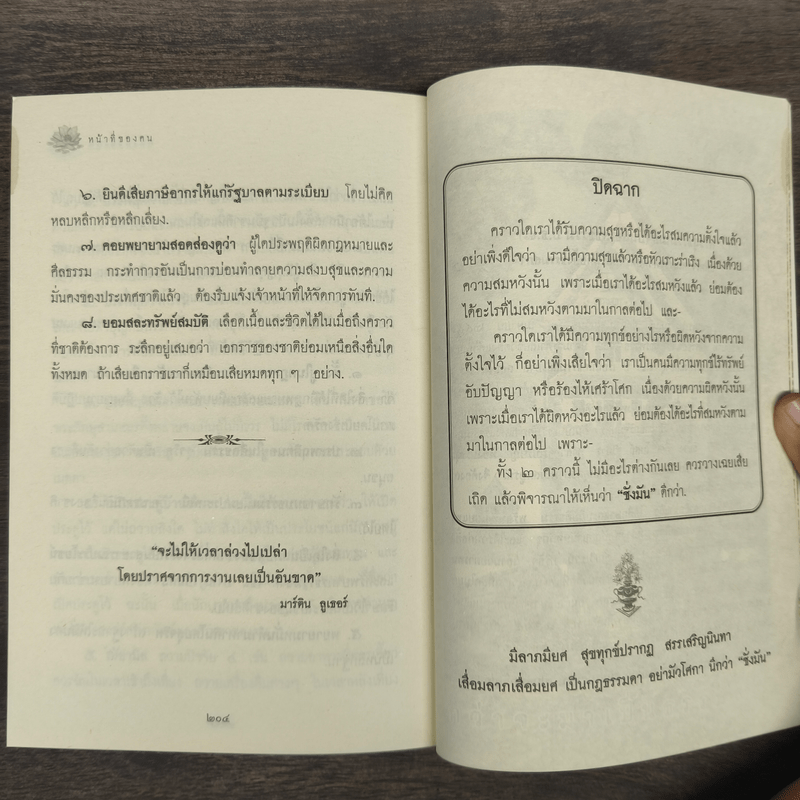 หน้าที่ของคน
๖. ยินดีเสียภาษีอากรให้แก่รัฐบาลตามระเบียบ โดยไม่คิด
หลบหลีกหรือหลีกเลี่ยง.
๗. คอยพยายามสอดส่องดูว่า ผู้ใดประพฤติผิดกฎหมายและ
ศีลธรรม กระทำการอันเป็นการบ่อนทำลายความสงบสุขและความ
มั่นคงของประเทศชาติแล้ว ต้องรีบแจ้งเจ้าหน้าที่ให้จัดการทันที.
๘. ยอมสละทรัพย์สมบัติ เลือดเนื้อและชีวิตได้ในเมื่อถึงคราว
ที่ชาติต้องการ ระลึกอยู่เสมอว่า เอกราชของชาติย่อมเหนือสิ่งอื่นใด
ทั้งหมด ถ้าเสียเอกราชเราก็เหมือนเสียหมดทุก ๆ อย่าง.
“จะไม่ให้เวลาล่วงไปเปล่า
โดยปราศจากการงานเลยเป็นอันขาด”
มาร์ติน ลูเธอร์
๒๐๔
ปิดฉาก
คราวใดเราได้รับความสุขหรือได้อะไรสมความตั้งใจแล้ว
อย่าเพิ่งดีใจว่า เรามีความสุขแล้วหรือหัวเราะร่าเริง เนื่องด้วย
ความสมหวังนั้น เพราะเมื่อเราได้อะไรสมหวังแล้ว ย่อมต้อง
ได้อะไรที่ไม่สมหวังตามมาในกาลต่อไป และ-
คราวใดเราได้มีความทุกข์อย่างไรหรือผิดหวังจากความ
ตั้งใจไว้ ก็อย่าเพิ่งเสียใจว่า เราเป็นคนมีความทุกข์ไร้ทรัพย์
อับปัญญา หรือร้องไห้เศร้าโศก เนื่องด้วยความผิดหวังนั้น
เพราะเมื่อเราได้ผิดหวังอะไรแล้ว ย่อมต้องได้อะไรที่สมหวังตาม
มาในกาลต่อไป เพราะ-
ทั้ง ๒ คราวนี้ ไม่มีอะไรต่างกันเลย ควรวางเฉยเสีย
เถิด แล้วพิจารณาให้เห็นว่า “ชั่งมัน” ดีกว่า.
มีลาภมียศ สุขทุกข์ปรากฏ สรรเสริญนินทา
เสื่อมลาภเสื่อมยศ เป็นกฎธรรมดา อย่ามัวโศกา นึกว่า “ชั่งมัน”